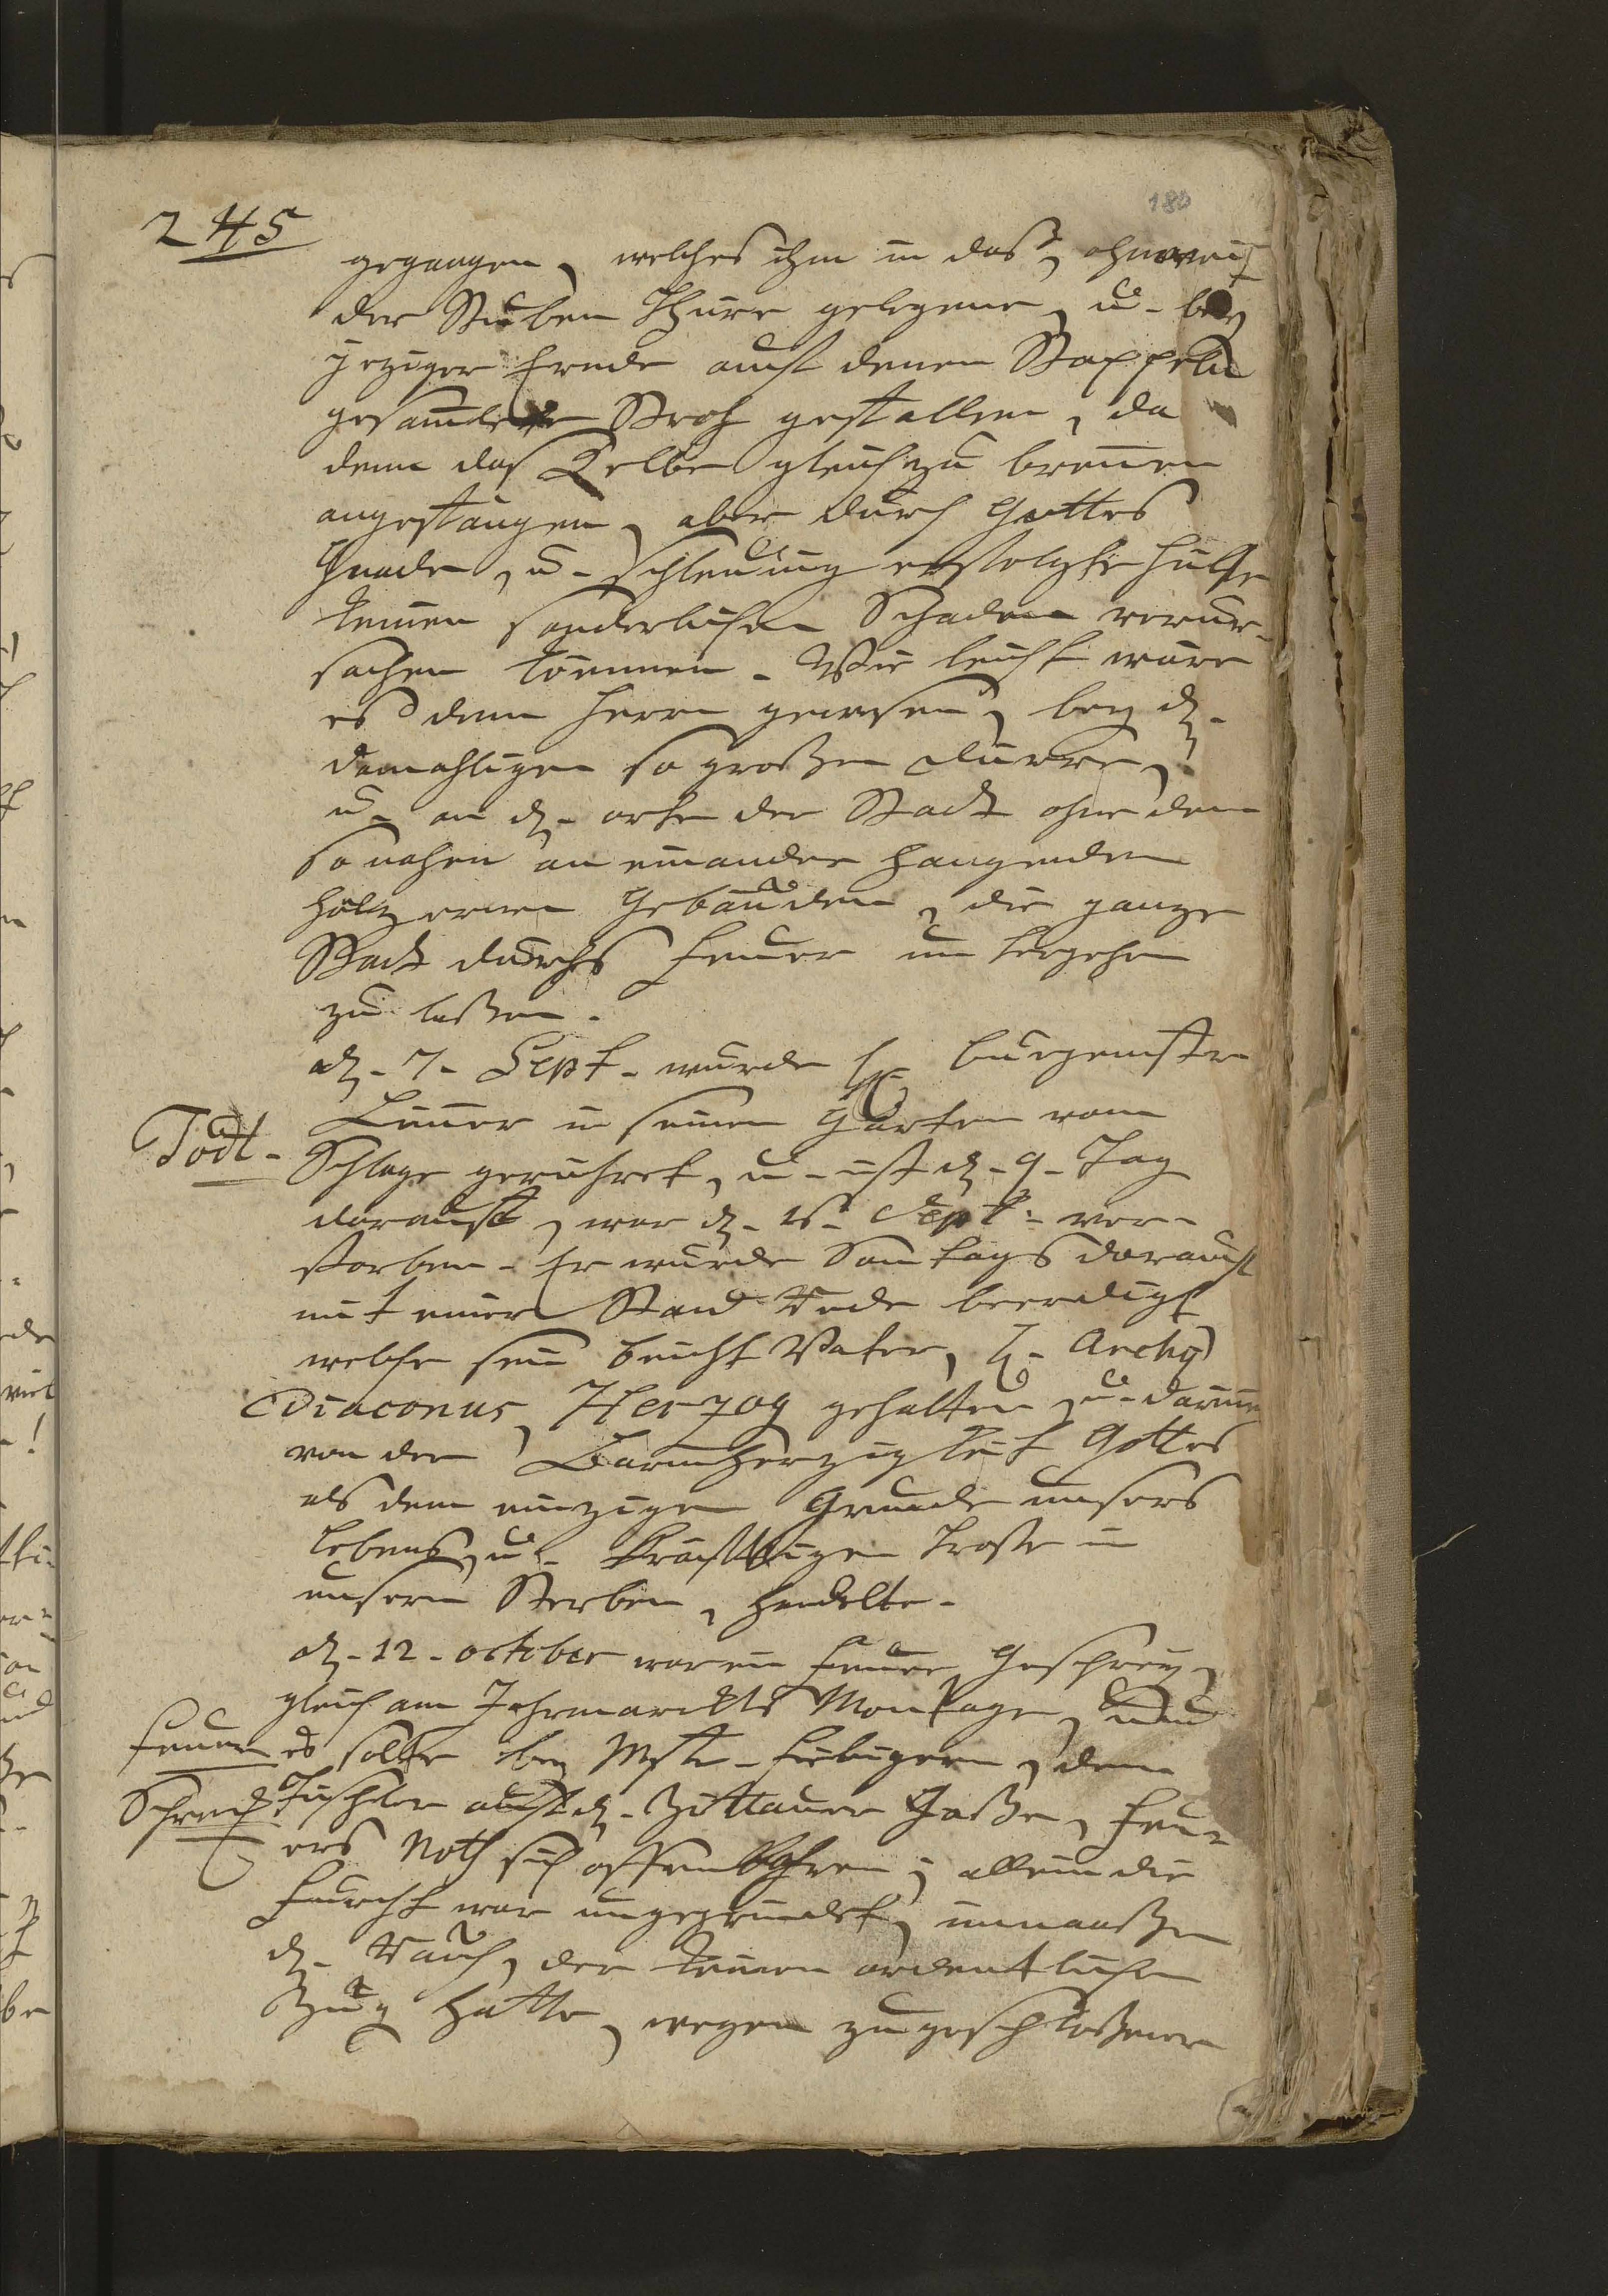 245
180
gegangen, welches ihm in das, ohnweit
der Stuben Thüre gelegene, u. bey
jeziger Ernde auf denen Stoppeln
gesamlete Stroh gefallen, da
denn das Selbe gleich zu brennen
angefangen, aber durch Gottes
Gnade, u. schleunig erfolgte Hülfe
keinen sonderlichen Schaden verur-
sachen können. Wie leicht wäre
es dem Herrn gewesen, bey d.
damahligen so großen Dürre,
u. an d. orte der Stadt ohne dem
so nahen an einander hangenden
höltzernen Gebäuden, die ganze
Stadt durchs Feuer im
zu laßen.
d. 7. Sept. wurde H. Burgemstr
in seinem Garten vom
Todt.
Schlage gerühret, u. ist d. 9. Tag
darauf, war d. Sept. ver-
storben. Er wurde Sontags darauf
mit einer Stand Rede beerdigt
welche sein Beicht Vater, H. Archi
Diaconus, Herzog gehalten, u. darinn
von der Barmherzigkeit Gottes
als dem einzigen Grunde unsers
Lebens, u. kräfftigen Troste in
unserm Sterben, handelte.
d. 12. october war ein Feuer Geschrey,
gleich am Jahrmarckts Montage, und
Feuer
es solte bey Mstr. Fiebigern, dem
Schreck
Tischler auf d. Zittauer Gaße, Feu-
ers Noth sich offenbahren; allein die
Furcht war ungegründet, immaaßen
d. Rauch, der keinen ordentlichen
Zug hatte, wegen zugeschloßener